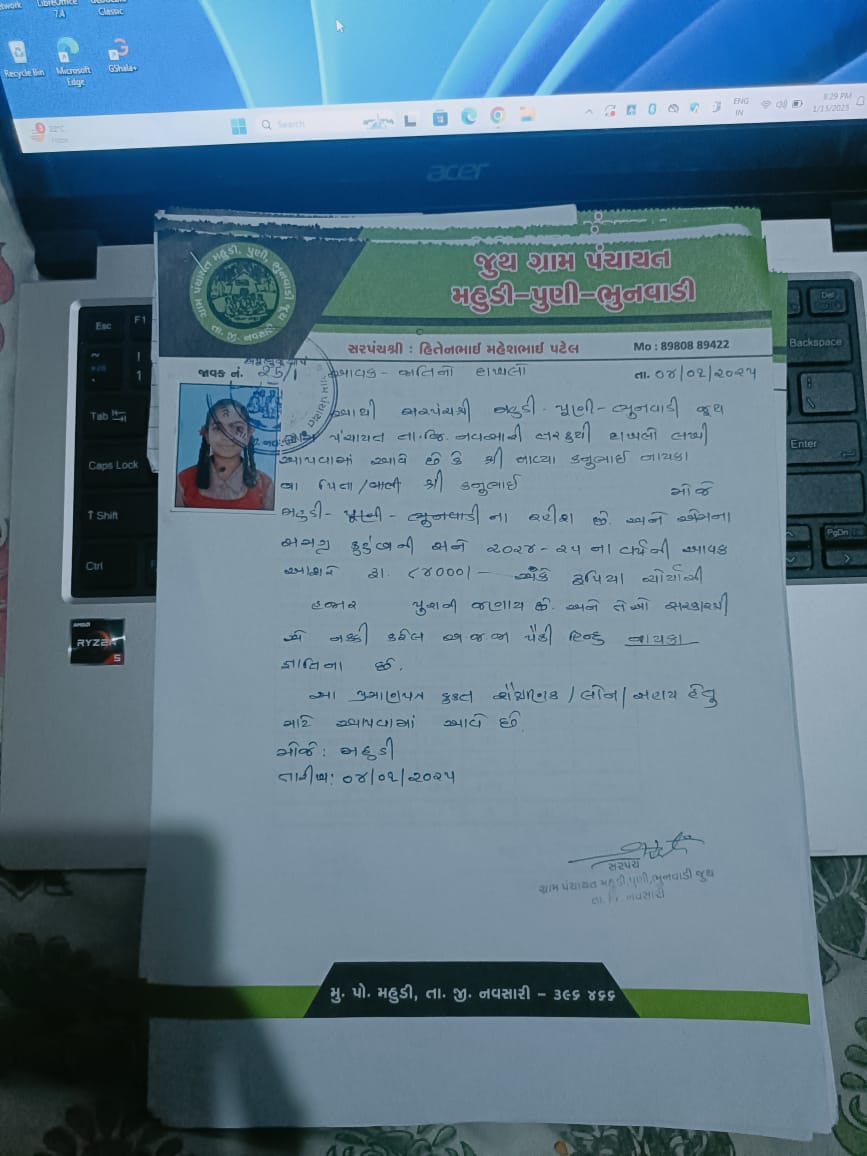 LibreOffice
7.4
Classic
Recycle Bin
Microsoft
Edge
GShala+
22°C
Search
ENG
IN
8:29 PM
1/15/2025
acer
Esc
F1
Tab
Caps Lock
Shift
Ctrl
Del
Backspace
Enter
PgDn
AMD
RYZEN
5
ગ્રામ પંચાયત મહુડી, પુણી, ભુનવાડી જુથ
તા. જી. નવસારી
જુથ ગ્રામ પંચાયત
મહુડી-પુણી-ભુનવાડી
સરપંચશ્રી : હિતેનભાઈ મહેશભાઈ પટેલ
Mo : 89808 89422
જાવક નં. 25/1
આવક - જાતિનો દાખલો
તા. ૦૪/૦૧/૨૦૨૫
આથી સરપંચશ્રી મહુડી - પૂણી - ભુનવાડી જૂથ
ગ્રામ પંચાયત તા.જિ. નવસારી તરફથી દાખલો લખી
આપવામાં આવે છે કે શ્રી કનુભાઈ નાયકા
ના પિતા/વાલી શ્રી કનુભાઈ મોજે
મહુડી - પૂણી - ભુનવાડી ના રહીશ છે. અને એમના
સમગ્ર કુટુંબની સને ૨૦૨૪-૨૫ ના વર્ષની આવક
આશરે રૂા. ૮૪૦૦૦/- અંકે રૂપિયા ચોર્યાસી
હજાર પુરાની જણાય છે. અને તેઓ સરકારશ્રી
એ નક્કી કરેલ અ.જ.જા પૈકી હિન્દુ નાયકા
જ્ઞાતિના છે.
આ પ્રમાણપત્ર ફક્ત શૈક્ષણિક / લોન / સહાય હેતુ
માટે આપવામાં આવે છે.
મોજે : મહુડી
તારીખ: ૦૪/૦૧/૨૦૨૫
સરપંચ
ગ્રામ પંચાયત મહુડી,પુણી,ભુનવાડી જુથ
તા.જિ. નવસારી
મુ. પો. મહુડી, તા. જી. નવસારી - ૩૯૬ ૪૬૬